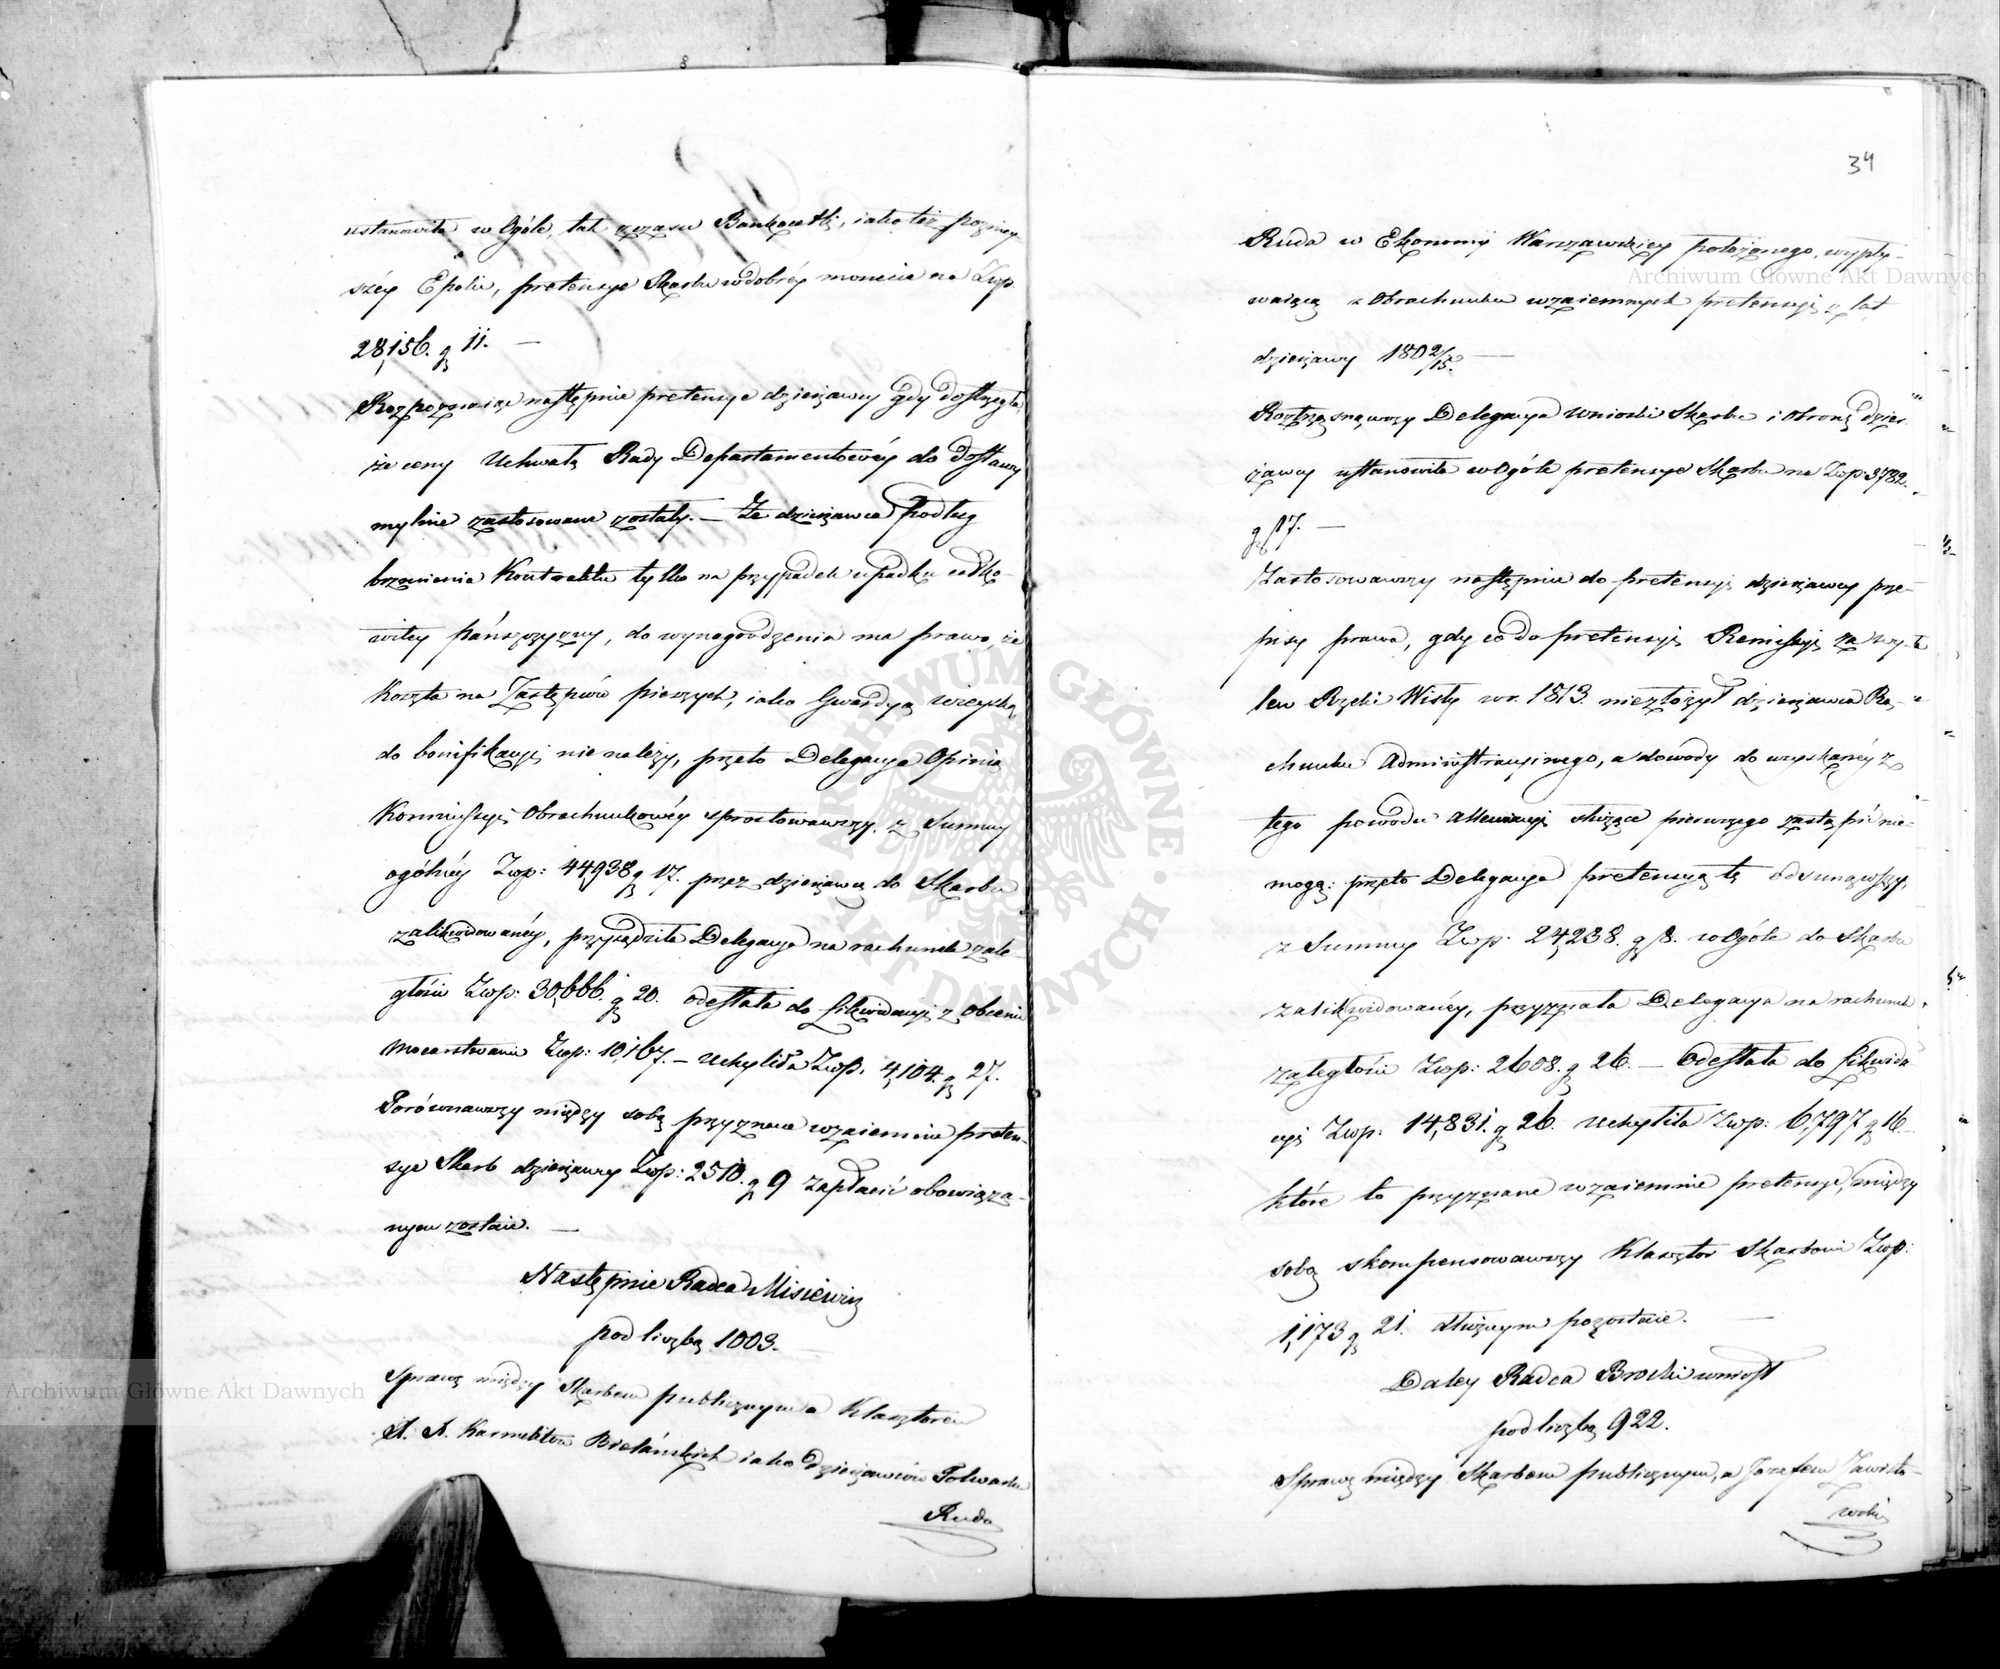 ustanowiła w Ogóle, tak z czasu Bankocetli, iako też pozniey-
széy Epoki, pretensye Skarbu w dobréy monecie na Złwp.
28,156. gr 11. —
Rozpoznaiąc następnie pretensye dzierżawcy gdy dostrzegła,
że ceny Uchwałą Rady Departamentowéy do dostawy
mylnie zastosowane zostały. — Że dzierżawca podług
brzmienia Kontraktu tylko na przypadek upadku całko-
witey pańszczyzny, do wynagrodzenia ma prawo, że
Koszta na Zastępców pieszych, iako Gwardyą wieyską
do bonifikacyi nie należy, przeto Delegacya Opinią
Kommissyi Obrachunkowéy sprostowawszy, z Summy
ogólnéy Złwp: 44,938 gr 17. przez dzierżawcę do Skarbu
zalikwidowanéy, przysądziła Delegacya na rachunek zale-
głości Złwp: 30,666. gr 20. odesłała do Likwidacyi z Obcemi
Mocarstwami Złwp: 10,167. — Uchyliła Złwp. 4,104. gr 27.
Porównawszy między sobą przyznane wzaiemnie preten-
sye Skarb dzierżawcy Złwp: 2510. gr 9 zapłacić obowiąza-
nym zostaie. —
Następnie Radca Misiewicz
pod liczbą 1003.
Sprawę między Skarbem publicznym a Klasztorem
X. X. Karmelitów Bielańskich iako dzierżawców Folwarku
Ruda
34
Ruda w Ekonomii Warszawskiey położonego, wypły-
waiącą z Obrachunku wzaiemnych pretensyi z lat
dzierżawy 1802/15. —
Roztrząsnąwszy Delegacya wnioski Skarbu i obronę dzier-
żawcy ustanowiła w Ogóle pretensye Skarbu na Złwp: 3782.
gr 17. —
Zastosowawszy następnie do pretensyi dzierżawcy prze-
pisy prawa, gdy co do pretensyi Remissyi za wy-
lew Rzeki Wisły w r. 1813. niezłożył dzierżawca Ra-
chunku Administracyinego, a dowody do uzyskanéy z
tego powodu Allewiacyi służące pierwszego zastąpić nie-
mogą: przeto Delegacya pretensyą tę odsunąwszy,
z Summy Złwp: 24,238. gr 8. w Ogóle do Skarbu
zalikwidowanéy, przyznała Delegacya na rachunek
zaległości Złwp: 2608. gr 26. — Odesłała do Likwida
cyi Złwp: 14,831. gr 26. Uchyliła Złwp: 6,797 gr 16. —
które to przyznane wzaiemnie pretensye, między
sobą skompensowawszy Klasztor Skarbowi Złwp:
1,173 gr 21. dłużnym pozostaie. —
Daley Radca Brocki wniosł
pod liczbą 922.
Sprawę między Skarbem publicznym, a Józefem Zawisto-
wski
Archiwum Główne Akt Dawnych
Archiwum Główne Akt Dawnych
ARCHIWUM GŁÓWNE AKT DAWNYCH